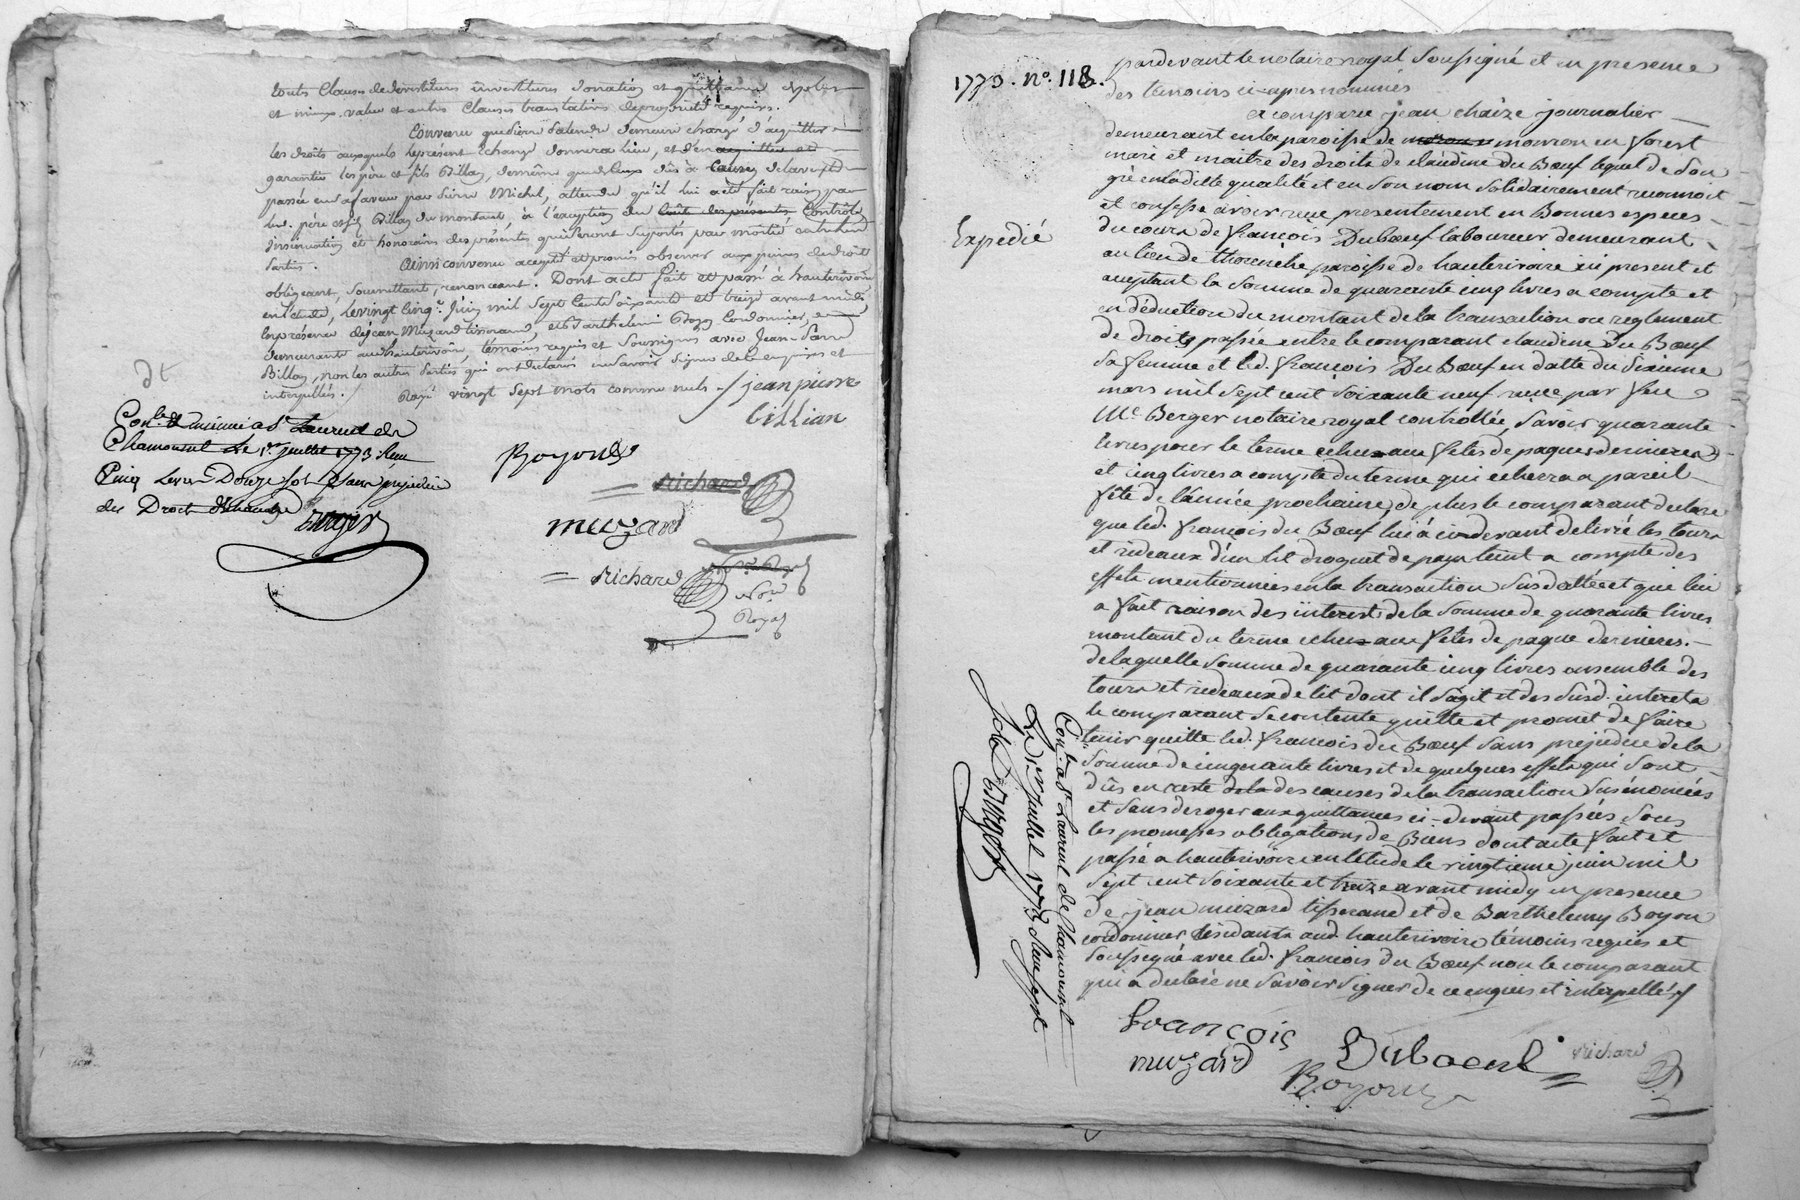 touts Clauses de devestitures investitures donation et quittance de plus
et mieux-value et autres Clauses translatives de propriété requises.
Convenu que sieur demeure chargé d'acquitter
les droits auxquels le présent échange donnera lieu, et d'en acquitter et
garantir les père et fils Billon, de même que de Ceux dûs à Cause de la vente
passée en sa faveur par sieur Michel, attendu qu'il lui a été fait raison par
led. père et fils Billon du montant, à l'exception du Coût des présentes Contrôle
insinuation et honoraires des présentes qui seront suportés par moitié entre les
parties. Ainsi convenu accepté et promis observer aux peines de droit
obligeant, soumettant, renonceant. Dont acte fait et passé à hauterivoire
en l'étude, le vingt Cinq.e Juin mil sept Cent soixante et treize avant midi
en présence de Jean Muzard tisserand, et Barthelemi Boyon Cordonnier,
demeurants aud. hauterivoire, témoins requis et soussignés avec Jean-Pierre
Billon, non les autres parties qui ont déclaré ne savoir signer de ce enquises et
interpellées. Rayé vingt sept mots comme nuls ./ jean pierre
billian
Con.lé & insinué a St Laurent de
Chamousset Le 1er juillet 1773 Reçu
Cinq Livres Douze sols sans préjudice
des Droits d'Echange
Boyon
Richard
muzard
Richard
No.re
Royal
1773. n°. 118.
Expedié
pardevant le notaire royal soussigné et en presence
des temoins ci-apres nommés
a comparu jean chaize journalier
demeurant en la paroisse de mouron en forest
mari et maitre des droits de claudine du Bœuf lequel de son
gré en ladite qualité et en son nom solidairement reconnoit
et confesse avoir reçu presentement en Bonnes especes
du cours de francois Dubœuf laboureur demeurant
au lieu de paroisse de hauterivoire ici present et
aceptant la somme de quarante cinq livres a compte et
en déduction du montant de la transaction ou reglement
de droits passée entre le comparant claudine Du Bœuf
sa femme et led. francois Du Bœuf en datte du sixieme
mars mil sept cent soixante neuf reçue par feu
Me Berger notaire royal controllée, savoir quarante
livres pour le terme echu aux fetes de paques dernieres
et cinq livres a compte du terme qui echerra a pareil
fête de l'année prochaine, de plus le comparant declare
que led. francois du Bœuf lui a cidevant delivré les tours
et rideaux d'un lit droguet de pays teint a compte des
effets mentionnés en la transaction susdattée et que lui
a fait raison des interets de la somme de quarante livres
montant du terme echu aux fetes de paque dernieres.
de laquelle somme de quarante cinq livres ensemble des
tours et rideaux de lit dont il s'agit et des susd. interets
le comparant se contente quitte et promet de faire
tenir quitte led. francois du Bœuf sans prejudice de la
somme de cinquante livres et de quelques effets qui sont
dûs en reste des causes de la transaction susénoncées
et sans deroger aux quittances ci-devant passées sous
les promesses obligations de Biens dont acte fait et
passé a hauterivoire en l'etude le vingtieme juin mil
sept cent soixante et treize avant midy en presence
de jean muzard tisserand et de Barthelemy Boyon
cordonnier residants aud. hauterivoire témoins requis et
soussigné avec led. francois du Bœuf non le comparant
qui a declaré ne savoir signer de ce enquis et interpellé ./
Con.lé a St Laurent de Chamousset
Le 1er juillet 1773 Reçu
François Duboeuf
muzard
Boyon
Richard